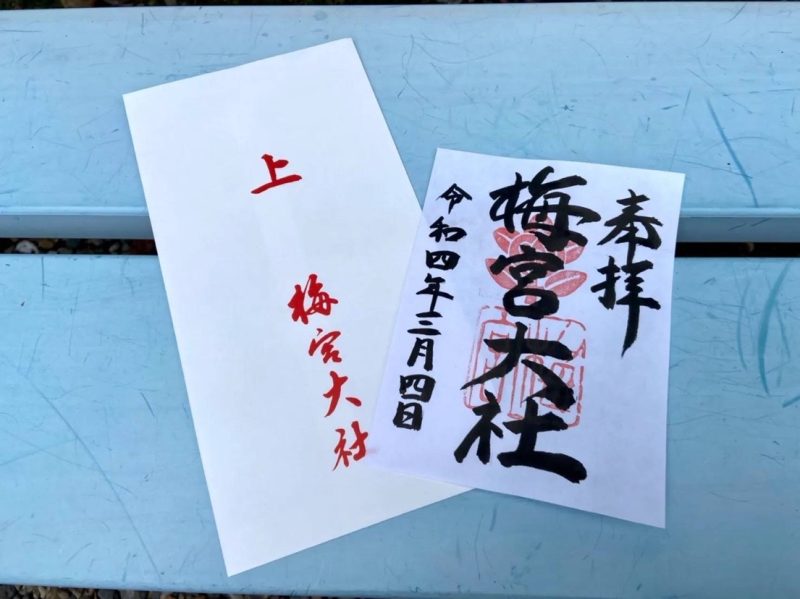 上
梅宮大社
奉拝
梅宮大社
令和四年三月四日